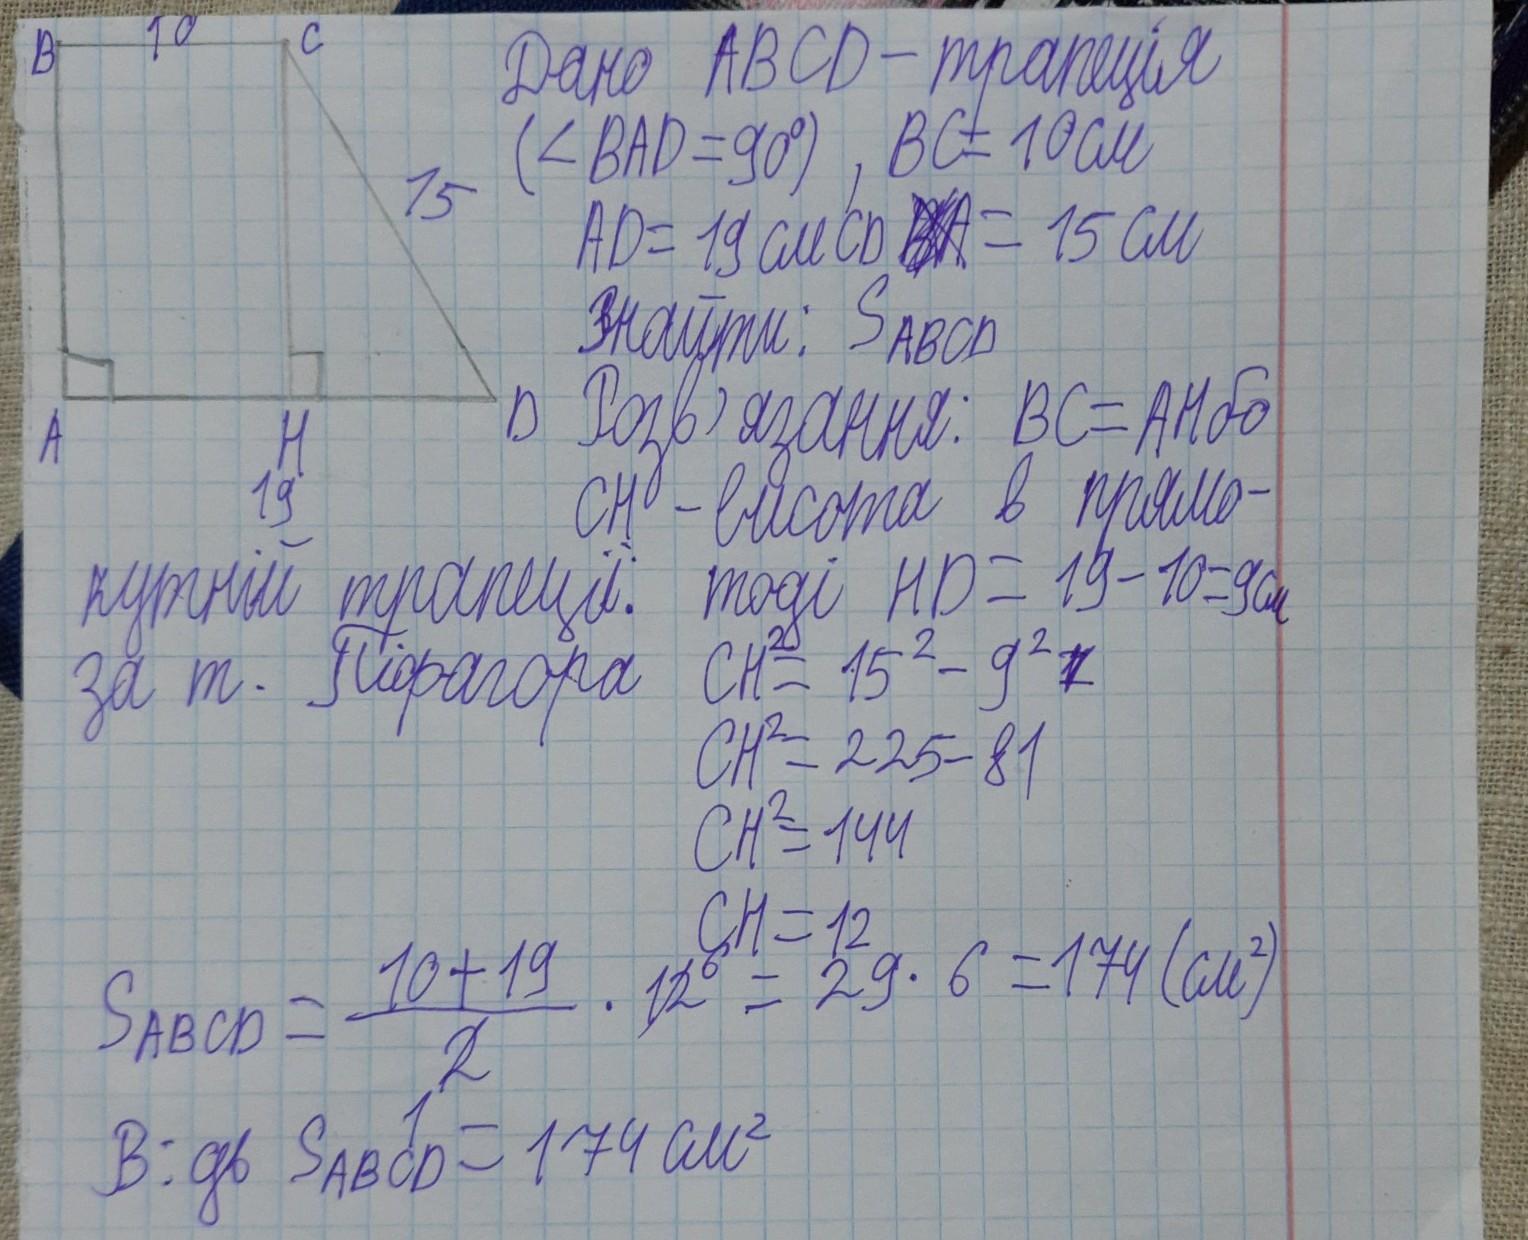 B 10 C
15
A H D
19
Дано ABCD – трапеція
(∠BAD = 90°), BC = 10 см
AD = 19 см CD = 15 см
Знайти: SABCD
Розв'язання: BC = AH бо
CH – висота в прямо-
кутній трапеції. тоді HD = 19 – 10 = 9 см
за т. Піфагора CH² = 15² – 9²
CH² = 225 – 81
CH² = 144
CH = 12
SABCD = 10 + 19 / 2 1 · 12 6 = 29 · 6 = 174 (см²)
В: дь SABCD = 174 см²